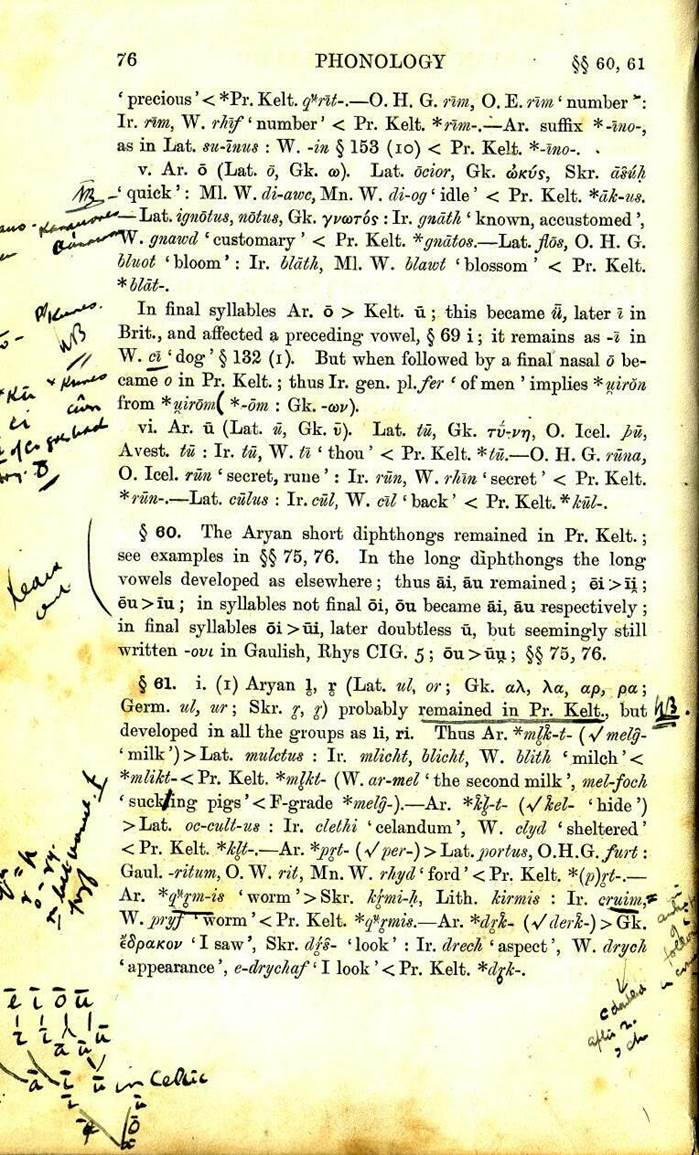 76 PHONOLOGY §§ 60, 61
‘ precious’ < *Pr. Kelt. qᵘ̯rīt-.—O. H. G. rīm, O. E. rīm ‘ number ’:
Ir. rīm, W. rhīf ‘ number’ < Pr. Kelt. *rīm-.—Ar. suffix *-īno-,
as in Lat. su-īnus : W. -in § 153 (10) < Pr. Kelt. *-īno-.
v. Ar. ō (Lat. ō, Gk. ω). Lat. ōcior, Gk. ὠκύς, Skr. āśúḥ
‘ quick’: Ml. W. di-awc, Mn. W. di-og ‘ idle’ < Pr. Kelt. *āk-us.
—Lat. ignōtus, nōtus, Gk. γνωτός : Ir. gnāth ‘ known, accustomed ’,
W. gnawd ‘ customary’ < Pr. Kelt. *gnātos.—Lat. flōs, O. H. G.
bluot ‘ bloom’: Ir. blāth, Ml. W. blawt ‘ blossom’ < Pr. Kelt.
*blāt-.
In final syllables Ar. ō > Kelt. ū ; this became ǖ, later ī in
Brit., and affected a preceding vowel, § 69 i ; it remains as -ī in
W. cī ‘ dog’ § 132 (1). But when followed by a final nasal ō be-
came o in Pr. Kelt. ; thus Ir. gen. pl. fer ‘ of men ’ implies *u̯irŏn
from *u̯irōm ( *-ōm : Gk. -ων).
vi. Ar. ū (Lat. ū, Gk. ῡ). Lat. tū, Gk. τῡ́-νη, O. Icel. þū,
Avest. tū : Ir. tū, W. tī ‘ thou’ < Pr. Kelt. *tū.—O. H. G. rūna,
O. Icel. rūn ‘ secret, rune’ : Ir. rūn, W. rhīn ‘ secret’ < Pr. Kelt.
*rūn-.—Lat. cūlus : Ir. cūl, W. cīl ‘ back’ < Pr. Kelt. *kūl-.
§ 60. The Aryan short diphthongs remained in Pr. Kelt. ;
see examples in §§ 75, 76. In the long diphthongs the long
vowels developed as elsewhere ; thus āi, āu remained ; ēi > īi̯ ;
ēu > īu ; in syllables not final ōi, ōu became āi, āu respectively ;
in final syllables ōi > ūi, later doubtless ū, but seemingly still
written -ουι in Gaulish, Rhys CIG. 5 ; ōu > ūu̯ ; §§ 75, 76.
§ 61. i. (1) Aryan l̥, r̥ (Lat. ul, or ; Gk. αλ, λα, αρ, ρα ;
Germ. ul, ur ; Skr. r̥, r̥) probably remained in Pr. Kelt., but NB.
developed in all the groups as li, ri. Thus Ar. *ml̥k̑-t- (√melĝ-
‘ milk’) > Lat. mulctus : Ir. mlicht, blicht, W. blith ‘ milch’ <
*mlikt- < Pr. Kelt. *ml̥kt- (W. ar-mel ‘ the second milk’, mel-foch
‘ suckling pigs’ < F-grade *melĝ-).—Ar. *k̑l̥-t- (√k̑el- ‘ hide ’)
> Lat. oc-cult-us : Ir. clethi ‘ celandum’, W. clyd ‘ sheltered’
< Pr. Kelt. *kl̥t-.—Ar. *pr̥t- (√per-) > Lat. portus, O.H.G. furt :
Gaul. -ritum, O. W. rit, Mn. W. rhyd ‘ ford’ < Pr. Kelt. *(p)r̥t-.—
Ar. *qᵘ̯r̥m-is ‘ worm’ > Skr. kŕ̥mi-ḥ, Lith. kirmis : Ir. cruim,
W. pryf ‘ worm’ < Pr. Kelt. *qᵘ̯r̥mis.—Ar. *dr̥k̑- (√derk̑-) > Gk.
ἔδρακον ‘ I saw’, Skr. dŕ̥ś- ‘ look’ : Ir. drech ‘ aspect’, W. drych
‘ appearance’, e-drychaf ‘ I look’ < Pr. Kelt. *dr̥k-.
NB
NB
Learn
out
ē ī ō ū
in Celtic